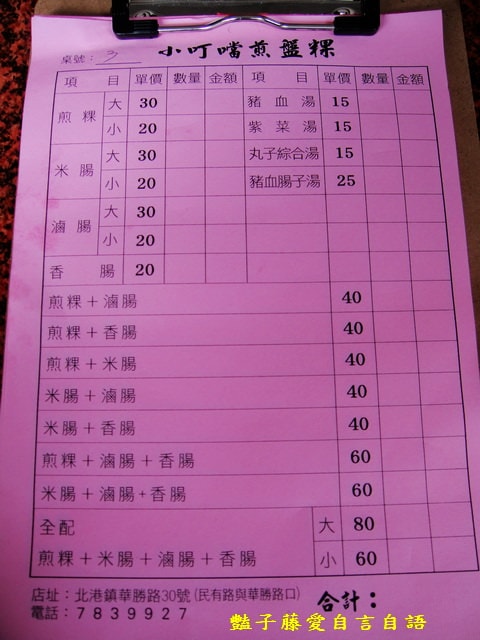 小叮噹煎盤粿
桌號：3
項目 單價 數量 金額 項目 單價 數量 金額
煎粿 大 30 豬血湯 15
小 20 紫菜湯 15
米腸 大 30 丸子綜合湯 15
小 20 豬血腸子湯 25
滷腸 大 30
小 20
香腸 20
煎粿＋滷腸 40
煎粿＋香腸 40
煎粿＋米腸 40
米腸＋滷腸 40
米腸＋香腸 40
煎粿＋滷腸＋香腸 60
米腸＋滷腸+香腸 60
全配 大 80
煎粿＋米腸＋滷腸＋香腸 小 60
店址：北港鎮華勝路30號(民有路與華勝路口)
電話：7839927
合計：
豔子藤愛自言自語